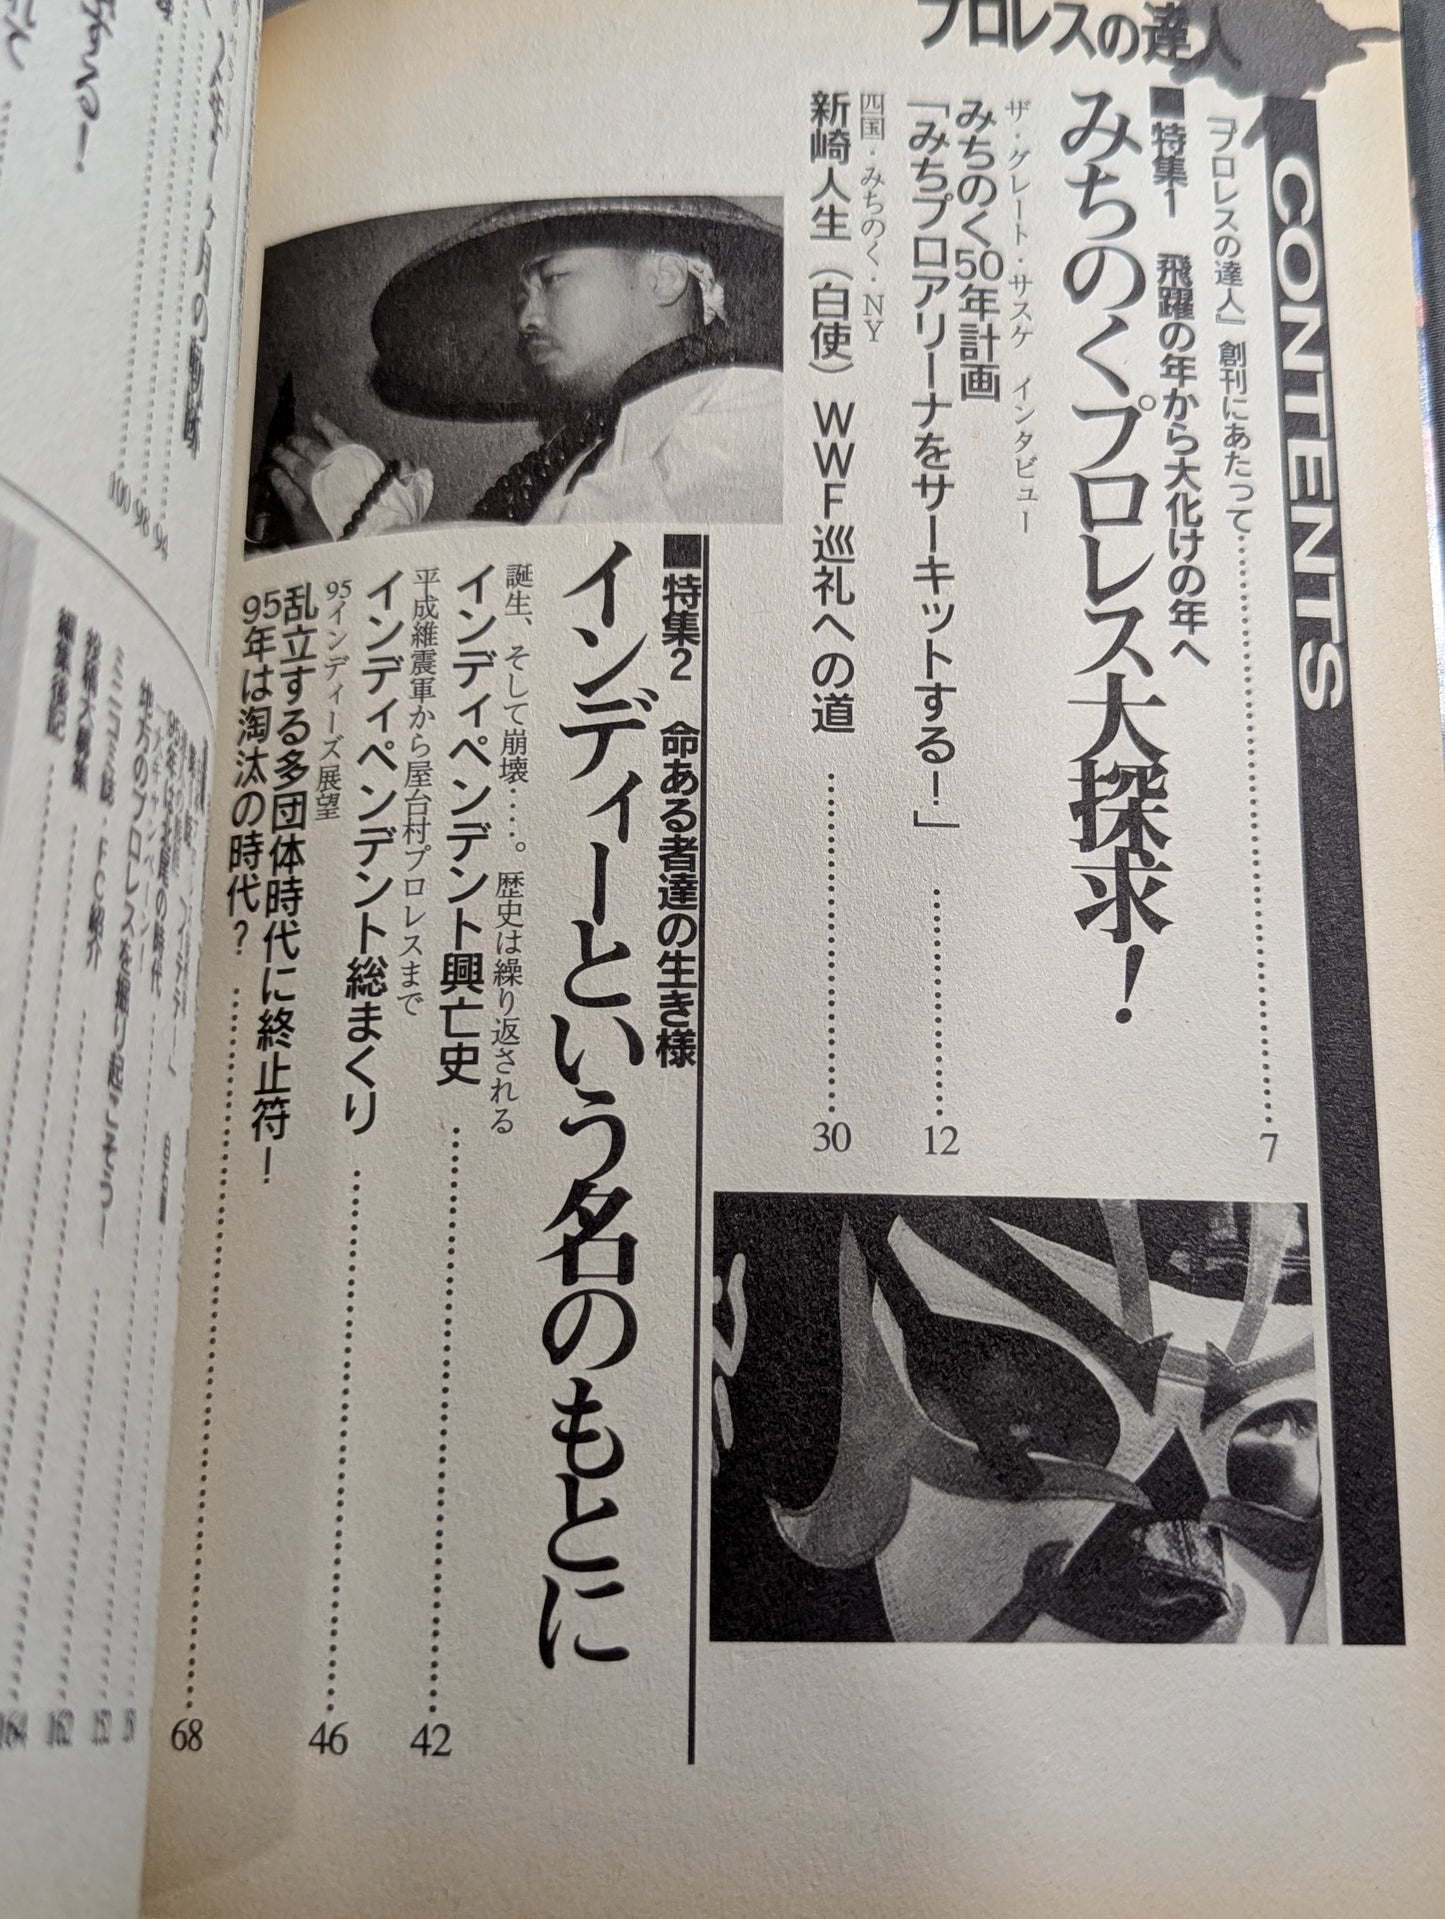 プロレスの達人
CONTENTS
『プロレスの達人』創刊にあたって……7
■特集1　飛躍の年から大化けの年へ
みちのくプロレス大探求！
ザ・グレート・サスケ　インタビュー
みちのく50年計画
「みちプロアリーナをサーキットする！」……12
四国・みちのく・NY
新崎人生（白使）WWF巡礼への道……30
■特集2　命ある者達の生き様
インディーという名のもとに
誕生、そして崩壊……。歴史は繰り返される
インディペンデント興亡史……42
平成維震軍から屋台村プロレスまで
インディペンデント総まくり……46
95インディーズ展望
乱立する多団体時代に終止符！
95年は淘汰の時代？……68
100 98 94
地方のプロレスを掘り起こそう！
ミニコミ誌・FC紹介……152
投稿大募集……162
編集後記……164